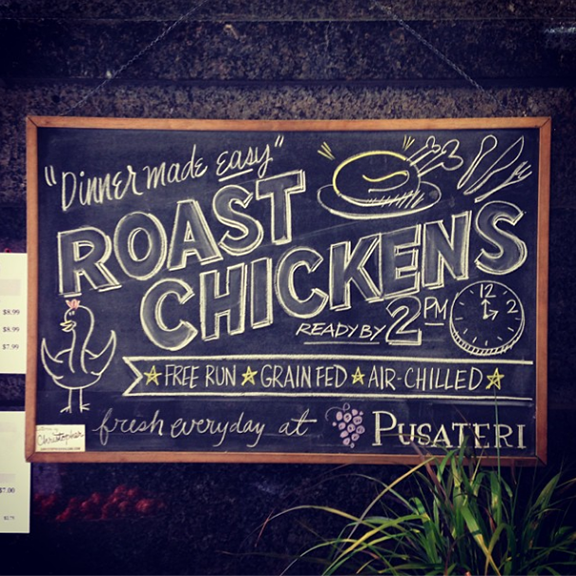 "Dinner made easy"
ROAST
CHICKENS
READY BY 2 PM
12
2
★ FREE RUN ★ GRAIN FED ★ AIR-CHILLED ★
fresh everyday at PUSATERI
Christopher
$8.99
$8.99
$7.99
$7.00